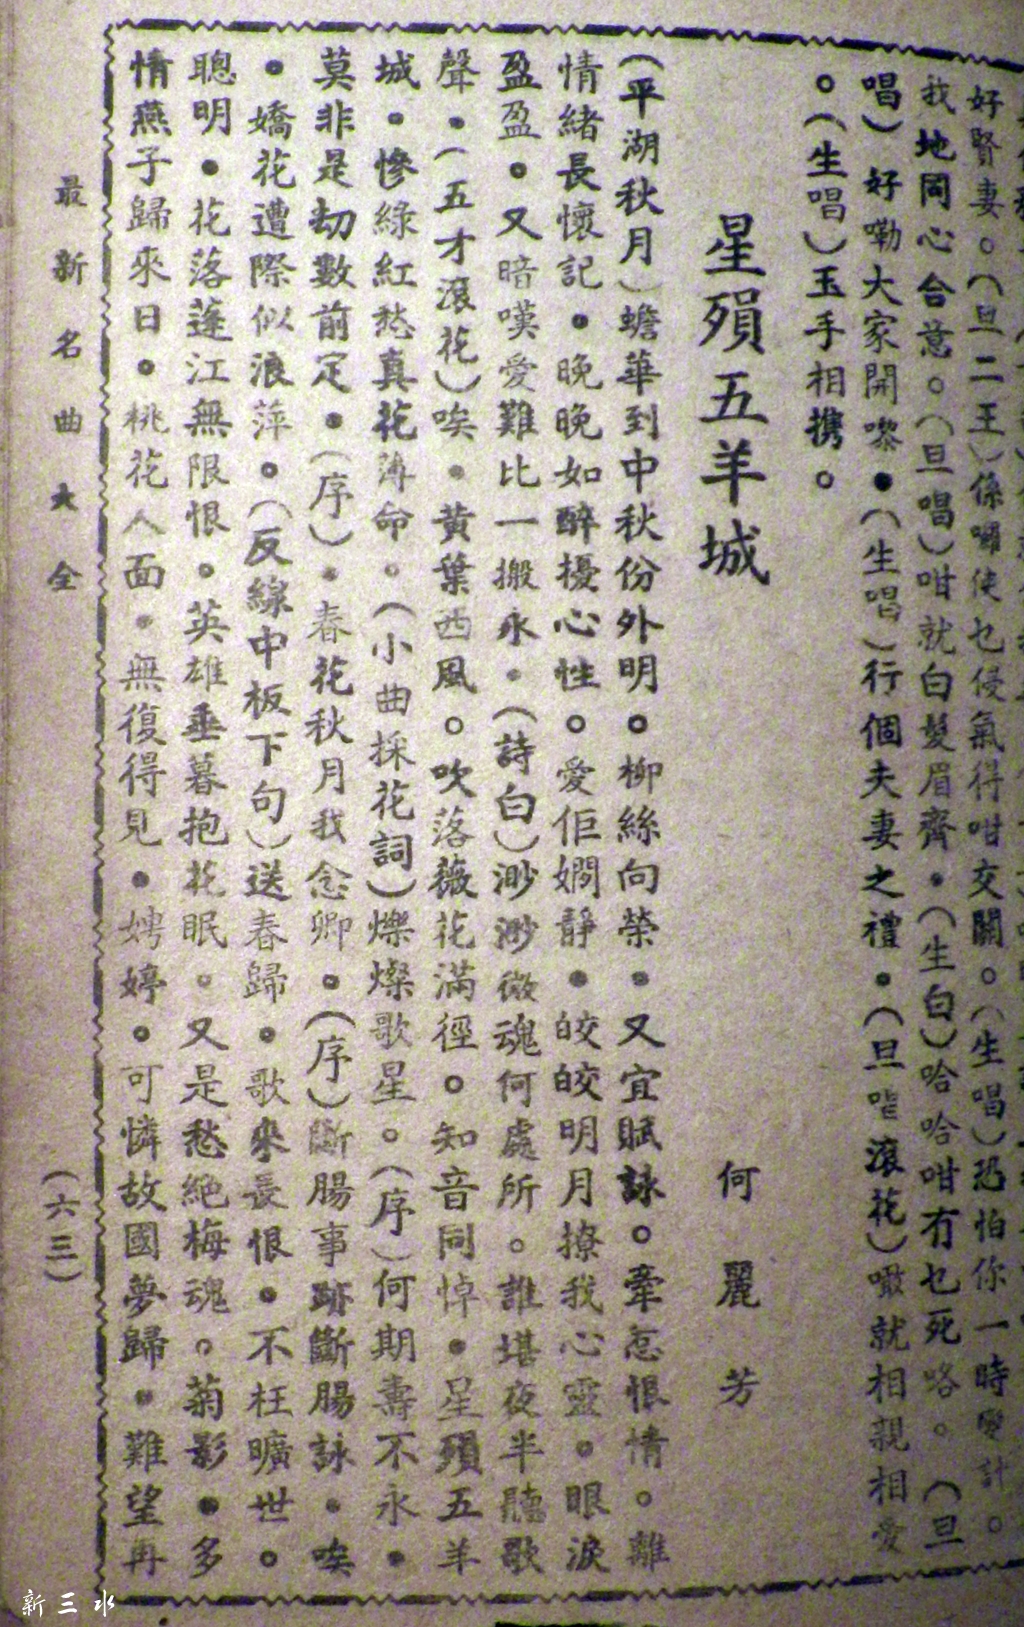 好賢妻。(旦二王)係囉使乜侵氣得咁交關。(生唱)恐怕你一時變計。
我地同心合意。(旦唱)咁就白髮眉齊。(生白)哈哈咁冇乜死咯。(旦
唱)好嘞大家開嚟。(生唱)行個夫妻之禮。(旦滾花)噉就相親相愛
。(生唱)玉手相携。
星殞五羊城
何麗芳
(平湖秋月)蟾華到中秋份外明。柳絲向榮。又宜賦詠。牽惹恨情。離
情緒長懷記。晚晚如醉擾心性。愛佢嫻靜。皎皎明月撩我心靈。眼淚
盈盈。又暗嘆愛難比一搬永。(詩白)渺渺微魂何處所。誰堪夜半聽歌
聲。(五才滾花)唉。黃葉西風。吹落薇花滿徑。知音同悼。星殞五羊
城。慘綠紅愁真花薄命。(小曲採花詞)爍燦歌星。(序)何期壽不永。
莫非是刧數前定。(序)。春花秋月我念卿。(序)斷腸事跡斷腸詠。唉
。嬌花遭際似浪萍。(反線中板下句)送春歸。歌來長恨。不枉曠世。
聰明。花落蓬江無限恨。英雄垂暮抱花眠。又是愁絕梅魂。菊影。多
情燕子歸來日。桃花人面。無復得見。娉婷。可憐故國夢歸。難望再
最新名曲大全
(六三)
新三水